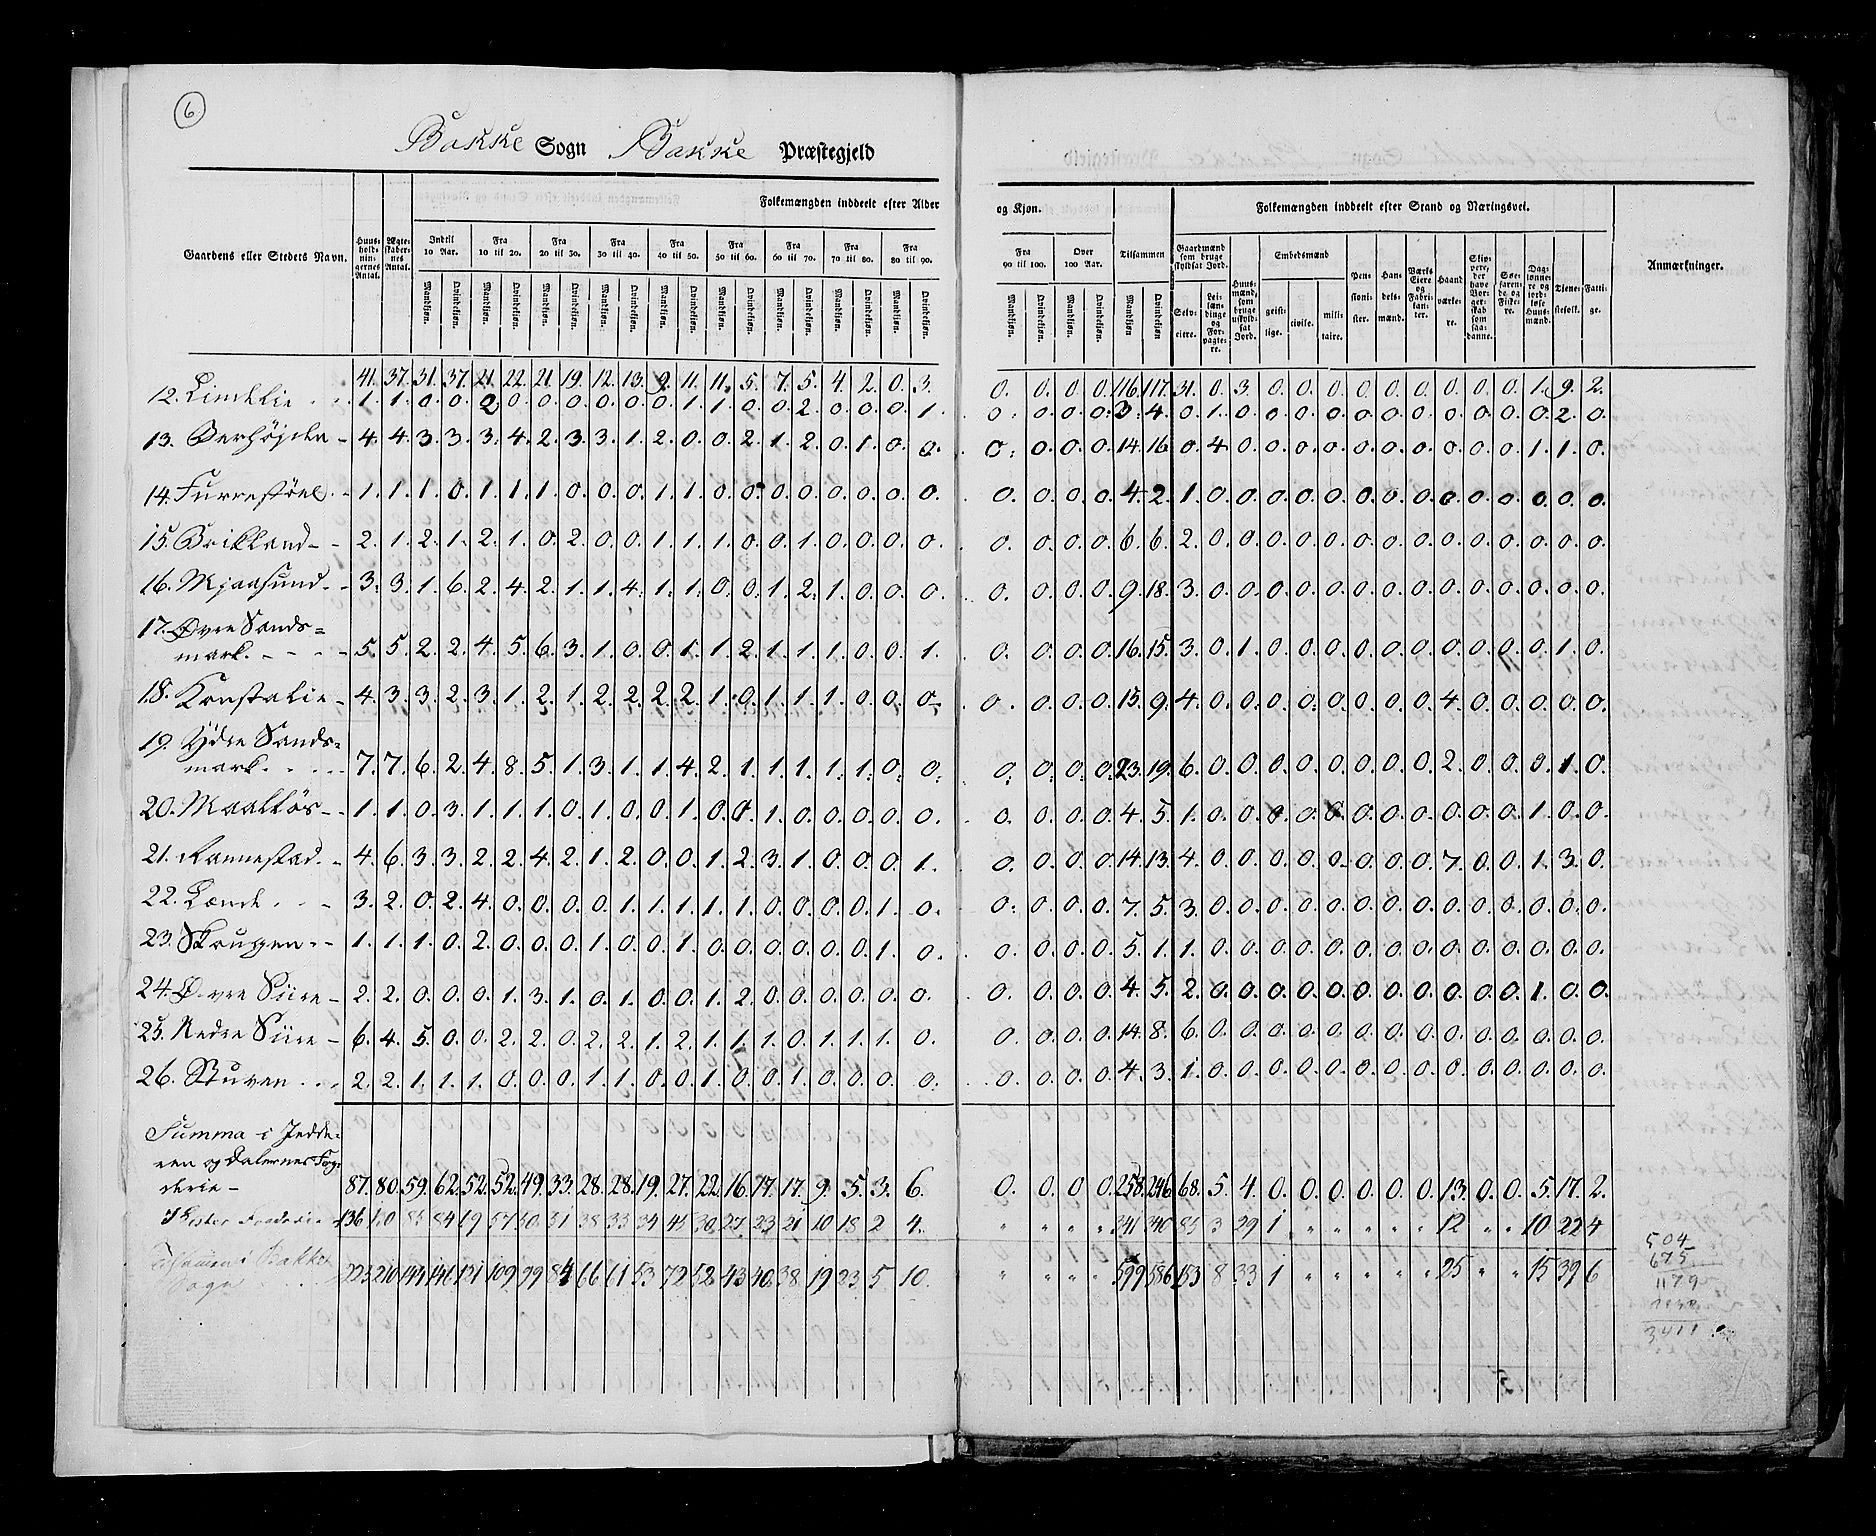 6
Bakke Sogn Bakke Præstegjeld
Folkemængden inddeelt efter Alder og Kjøn. Folkemængden inddeelt efter Stand og Næringsvei.
Gaardens eller Stedets Navn. Huus-hold-nin-gernes Antal. Ægte-skaber-nes Antal. Indtil 10 Aar. Fra 10 til 20. Fra 20 til 30. Fra 30 til 40. Fra 40 til 50. Fra 50 til 60. Fra 60 til 70. Fra 70 til 80. Fra 80 til 90. Fra 90 til 100. Over 100 Aar. Tilsammen Gaardmænd som bruge skyldsat Jord. Huus-mænd, som bruge uskyld-sat Jord. Embedsmænd Pen-sioni-ster. Han-dels-mænd. Værks Eiere og Fabri-kan-ter. Haand værke-re. Skip-pere, der have Bor-ger-skab som saa-danne. Søe-faren-de og Fiske-re. Dag-lønne-re og jord-løse Huus-mænd. Tjene-stefolk. Fatti-ge. Anmærkninger.
Mandkjøn. Qvindekjøn. Mandkjøn. Qvindekjøn. Mandkjøn. Qvindekjøn. Mandkjøn. Qvindekjøn. Mandkjøn. Qvindekjøn. Mandkjøn. Qvindekjøn. Mandkjøn. Qvindekjøn. Mandkjøn. Qvindekjøn. Mandkjøn. Qvindekjøn. Mandkjøn. Qvindekjøn. Mandkjøn. Qvindekjøn. Mandkjøn Qvindekjøn. Selv-eiere. Lei-læn-dinge og For-pagte-re. geist-lige. civile. mili-taire.
41. 37. 31. 37. 21. 22. 21. 19. 12. 13. 9. 11. 11. 5. 7. 5. 4. 2. 0. 3. 0. 0. 0. 0. 116. 117. 31. 0. 3. 0. 0. 0. 0. 0. 0. 0. 0. 0. 1. 9. 2.
12. Lindelie 1. 1. 0. 0. 2. 0. 0. 0. 0. 0. 0. 1. 1. 0. 0. 2. 0. 0. 0. 1. 0. 0. 0. 0. 3. 4. 0. 1. 0. 0. 0. 0. 0. 0. 0. 0. 0. 0. 0. 2. 0.
13. 4. 4. 3. 3. 3. 4. 2. 3. 3. 1. 2. 0. 0. 2. 1. 2. 0. 1. 0. 0. 0. 0. 0. 0. 14. 16. 0. 4. 0. 0. 0. 0. 0. 0. 0. 0. 0. 0. 1. 1. 0.
14. Furrestøel 1. 1. 1. 0. 1. 1. 1. 0. 0. 0. 1. 1. 0. 0. 0. 0. 0. 0. 0. 0. 0. 0. 0. 0. 4. 2. 1. 0. 0. 0. 0. 0. 0. 0. 0. 0. 0. 0. 0. 0. 0.
15. Birkland 2. 1. 2. 1. 2. 1. 0. 2. 0. 0. 1. 1. 1. 0. 0. 1. 0. 0. 0. 0. 0. 0. 0. 0. 6. 6. 2. 0. 0. 0. 0. 0. 0. 0. 0. 0. 0. 0. 0. 0. 0.
16. Mjaasund 3. 3. 1. 6. 2. 4. 2. 1. 1. 4. 1. 1. 0. 0. 1. 2. 1. 0. 0. 0. 0. 0. 0. 0. 9. 18. 3. 0. 0. 0. 0. 0. 0. 0. 0. 0. 0. 0. 0. 0. 0.
17. Øvre Sands=
mark. 5. 5. 2. 2. 4. 5. 6. 3. 1. 0. 0. 1. 1. 2. 1. 1. 1. 0. 0. 1. 0. 0. 0. 0. 16. 15. 3. 0. 1. 0. 0. 0. 0. 0. 0. 0. 0. 0. 0. 1. 0.
18. Konstalie 4. 3. 3. 2. 3. 1. 2. 1. 2. 2. 2. 2. 1. 0. 1. 1. 1. 0. 0. 0. 0. 0. 0. 0. 15. 9. 4. 0. 0. 0. 0. 0. 0. 0. 0. 4. 0. 0. 0. 0. 0.
19. Ydre Sands=
mark. 7. 7. 6. 2. 4. 8. 5. 1. 3. 1. 1. 4. 2. 1. 1. 1. 1. 1. 0. 0. 0. 0. 0. 0. 23. 19. 6. 0. 0. 0. 0. 0. 0. 0. 0. 2. 0. 0. 0. 1. 0.
20. 1. 1. 0. 3. 1. 1. 1. 0. 1. 0. 0. 1. 0. 0. 1. 0. 0. 0. 0. 0. 0. 0. 0. 0. 4. 5. 1. 0. 0. 0. 0. 0. 0. 0. 0. 0. 0. 0. 1. 0. 0.
21. Rannestad 4. 6. 3. 3. 2. 2. 4. 2. 1. 2. 0. 0. 1. 2. 3. 1. 0. 0. 0. 1. 0. 0. 0. 0. 14. 13. 4. 0. 0. 0. 0. 0. 0. 0. 0. 7. 0. 0. 1. 3. 0.
22. Lænde 3. 2. 0. 2. 4. 0. 0. 0. 0. 1. 1. 1. 1. 1. 0. 0. 0. 0. 1. 0. 0. 0. 0. 0. 7. 5. 3. 0. 0. 0. 0. 0. 0. 0. 0. 0. 0. 0. 0. 0. 0.
23. Skruppen 1. 1. 1. 0. 2. 0. 0. 0. 1. 0. 0. 1. 0. 0. 0. 0. 0. 0. 1. 0. 0. 0. 0. 0. 5. 1. 1. 0. 0. 0. 0. 0. 0. 0. 0. 0. 0. 0. 0. 0. 0.
24. Øvre Siire 2. 2. 0. 0. 0. 1. 3. 1. 0. 1. 0. 0. 1. 2. 0. 0. 0. 0. 0. 0. 0. 0. 0. 0. 4. 5. 2. 0. 0. 0. 0. 0. 0. 0. 0. 0. 0. 0. 1. 0. 0.
25. Nedre Siire 6. 4. 5. 0. 0. 2. 2. 0. 2. 2. 1. 2. 1. 1. 1. 0. 1. 1. 1. 0. 0. 0. 0. 0. 14. 8. 6. 0. 0. 0. 0. 0. 0. 0. 0. 0. 0. 0. 0. 0. 0.
26. Stuven 2. 2. 1. 1. 1. 0. 0. 0. 1. 1. 0. 0. 1. 0. 0. 1. 0. 0. 0. 0. 0. 0. 0. 0. 4. 3. 1. 0. 0. 0. 0. 0. 0. 0. 0. 0. 0. 0. 0. 0. 0.
Summa i Jedde=
ren og Dalernes Fog=
derie 87. 80. 59. 62. 52. 52. 49. 33. 28. 28. 19. 27. 22. 16. 17. 17. 9. 5. 3. 6. 0. 0. 0 0. 258. 246. 68. 5. 4. 0. 0. 0. 0. 0. 0. 13. 0. 0. 5. 17. 2.
136 85 84 57 50 51 38 33 34 45 30 27 23 21 10 18 2 4. " " " " 341 340 85 3 29 1 " " " " " 12 " " 10 22 4
Bakke
Sogn 223 210 144 146 131 109 99 84 66 61 53 72 52 43 40 38 19 23 5 10. " " " " 599 586 153 8 33 1 " " " " " 25 " " 15 39 6
504
675
1179
3411